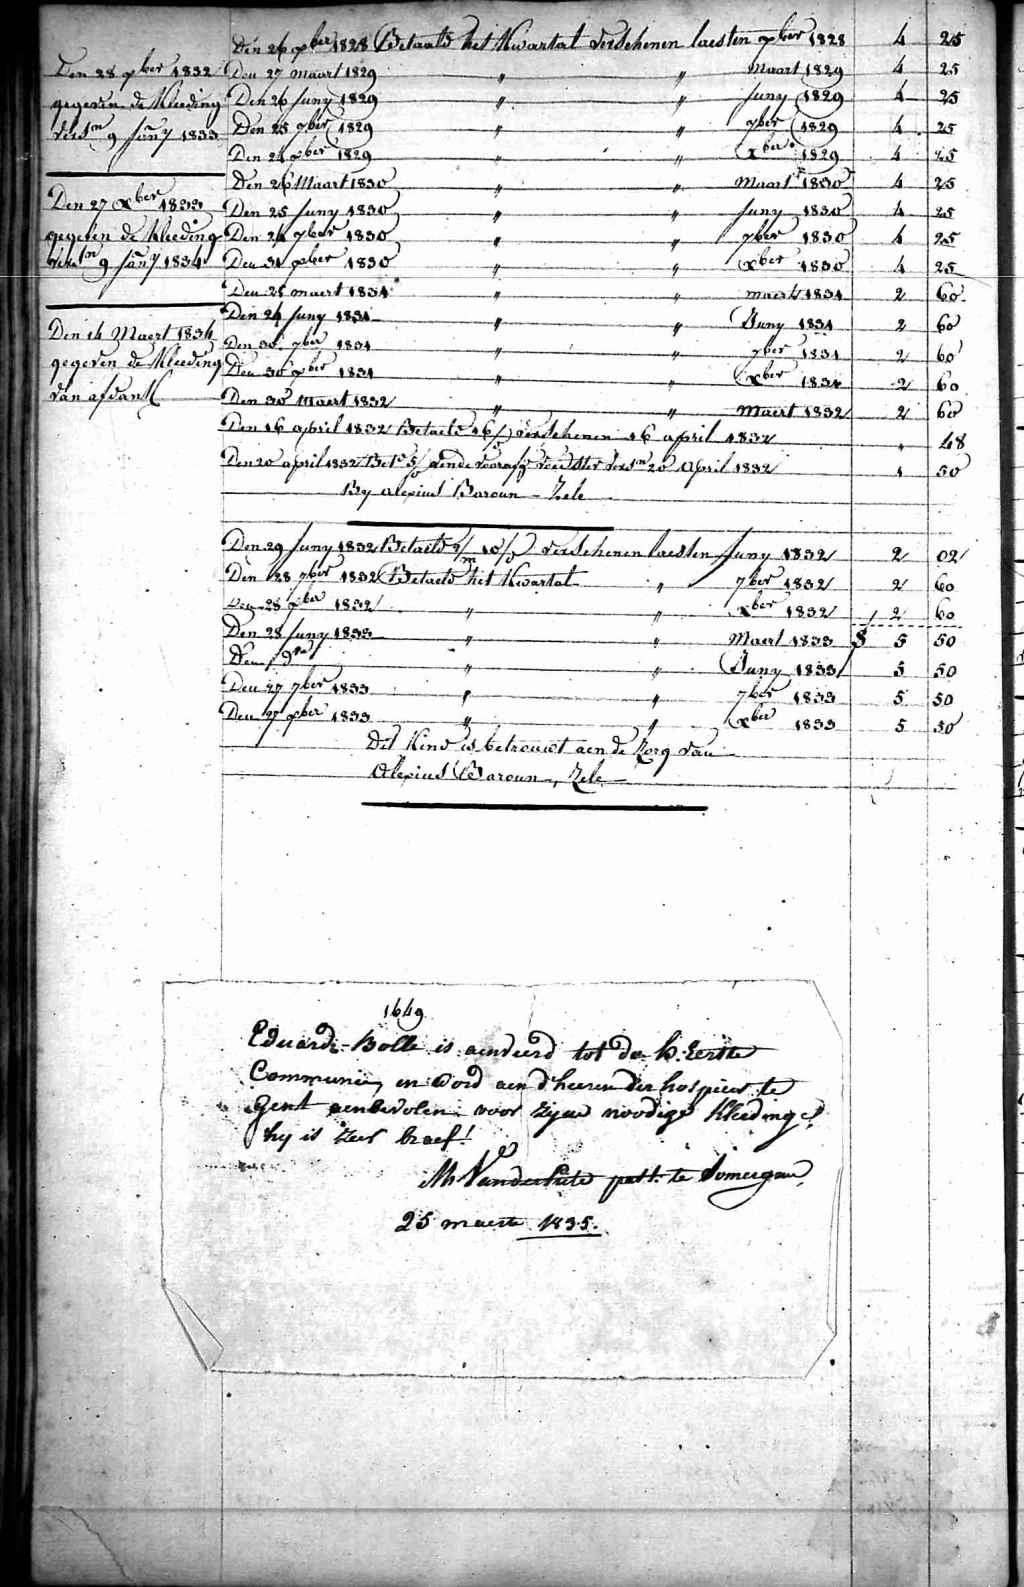 Den 28 xber 1832
gegeven de Kleeding
vers.m 9 Jany 1833
Den 27 xber 1833
gegeven de Kleeding
vers.m 9 Jany 1834
Den 14 Maert 1834
gegeven de Kleeding
van afdank
Den 26 xber 1828 Betaeld het Kwartal verschenen laesten xber 1828 4 25
Den 27 maart 1829 " " Maart 1829 4 25
Den 26 Juny 1829 " " Juny 1829 4 25
Den 25 7ber 1829 " " 7ber 1829 4 25
Den 24 xber 1829 " " xber 1829 4 25
Den 26 Maart 1830 " " Maart 1830 4 25
Den 25 Juny 1830 " " Juny 1830 4 25
Den 24 7ber 1830 " " 7ber 1830 4 25
Den 31 xber 1830 " " xber 1830 4 25
Den 25 maert 1831 " " maert 1831 2 60
Den 24 Juny 1831 " " Juny 1831 2 60
Den 30 7ber 1831 " " 7ber 1831 2 60
Den 30 xber 1831 " " xber 1831 2 60
Den 30 Maert 1832 " " Maert 1832 2 60
Den 16 april 1832 Betaeld 16/ verschenen 16 april 1832 " 48
Den 20 april 1832 20 April 1832 1 50
By Alexius Baroun - Zele
Den 29 Juny 1832 Betaeld 2/m 10/ verschenen laesten Juny 1832 2 02
Den 28 7ber 1832 Betaeld het Kwartal " 7ber 1832 2 60
Den 28 xber 1832 " " xber 1832 2 60
Den 28 Juny 1833 " " Maert 1833 5 50
Den do " " Juny 1833 5 50
Den 27 7ber 1833 " " 7ber 1833 5 50
Den 27 xber 1833 " " xber 1833 5 50
Dit Kind is betrouwt aen de zorg van
Alexius Baroun, Zele
1649
Eduard Bolle is aenveerd tot de H. Eerste
Communie, en word aen d'heeren der hospicen te
Gent aenbevolen voor zyne noodige Kleeding,
hy is zeer braef!
te Somergem
25 maerte 1835.